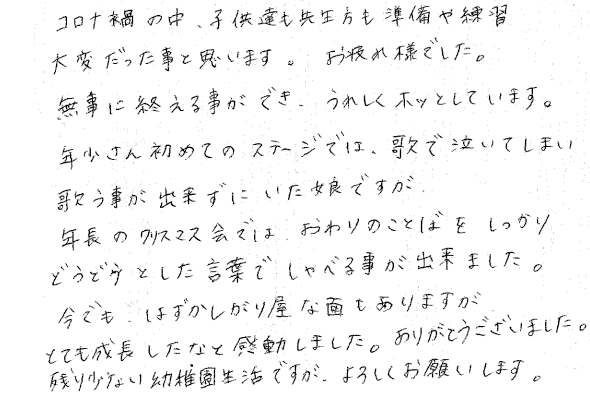 コロナ禍の中、子供達も先生方も準備や練習
大変だった事と思います。お疲れ様でした。
無事に終える事ができ、うれしくホッとしています。
年少さん初めてのステージでは、歌で泣いてしまい
歌う事が出来ずにいた娘ですが、
年長のクリスマス会では おわりのことばを しっかり
どうどうとした言葉でしゃべる事が出来ました。
今でも、はずかしがり屋な面もありますが
とても成長したなと感動しました。ありがとうございました。
残り少ない幼稚園生活ですが、よろしくお願いします。